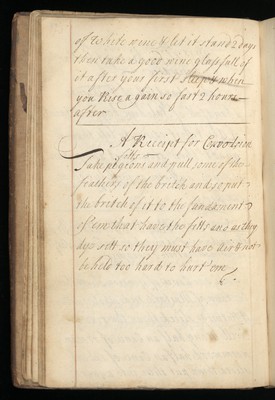 of White wine & let it stand 2 days
then take a good wine glass full of
it after your first sleep & when
you Rise again so fast 2 hours
after
A Receipt for Convlsion
fitts
Take pigeons and pull some of the
feathers of the britch and so put
the britch of it to the fundament
of 'em that have the fitts and as they
dye sett so they must have air & not
be held too hard to hurt 'em